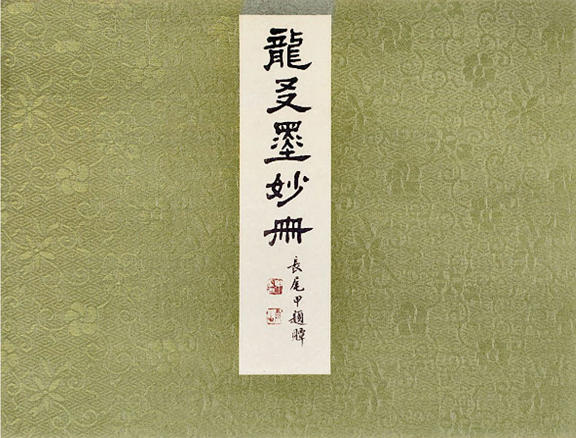 龍叟墨妙冊
長尾甲題籤